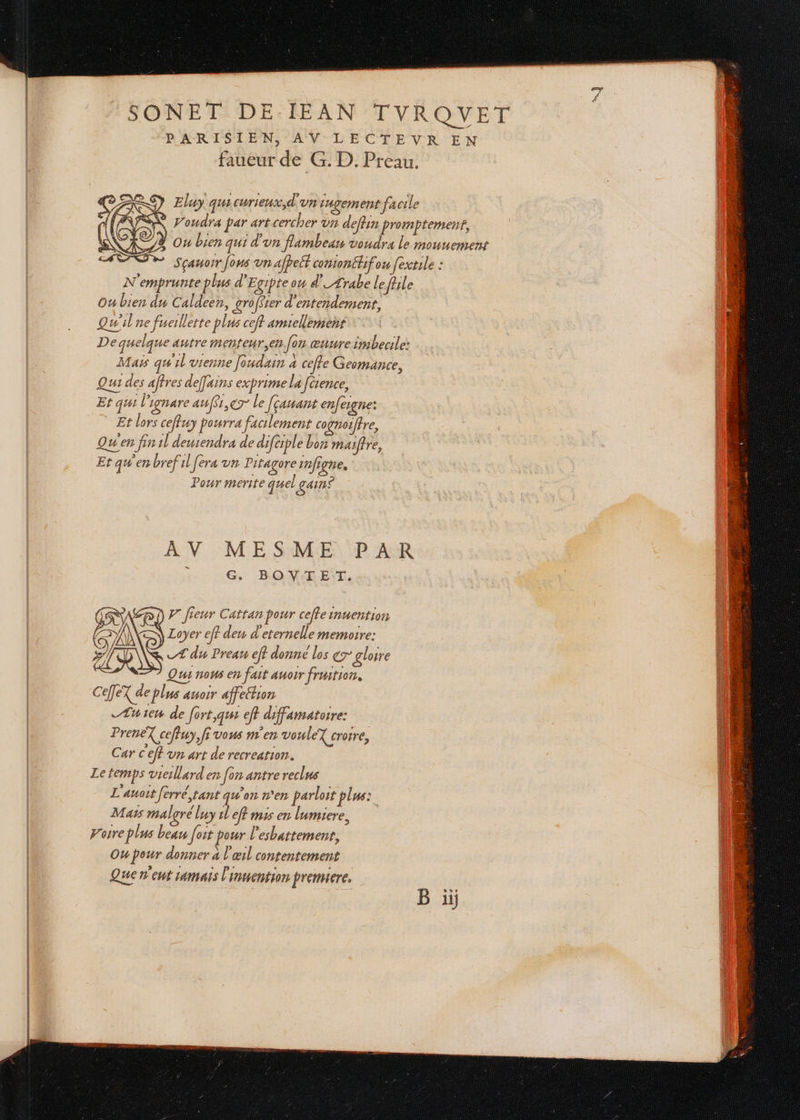 7
SONET DE IEAN TVRQVET
PARISIEN, AV LECTEVR EN
faueur de G. D. Preau.
CEluy qui curieux, d'vn iugement facile
Voudra par art cercher vn destin promptement,
Ou bien qui d'vn flambeau voudra le mouuement
Sçauoir sous vn aspect conionctif ou sextile :
N'emprunte plus d'Egipte ou d'Arabe le stile
Ou bien du Caldeen, grossier d'entendement,
Qu'il ne fueillette plus cest amiellement
De quelque autre menteur, en son œuure imbecile:
Mais qu'il vienne soudain à ceste Geomance,
Qui des astres dessains exprime la science,
Et qui l'ignare aussi, & le sçauant enseigne:
Et lors cestuy pourra facilement cognoistre,
Qu'en fin il deuiendra de disciple bon maistre,
Et qu'en bref il sera vn Pitagore insigne.
Pour merite quel gain?
AV MESME PAR
G. BOVTET.
DV sieur Cattan pour ceste inuention
Loyer est deu d'eternelle memoire:
A du Preau est donné los & gloire
Qui nous en fait auoir fruition.
Cessez de plus auoir affection
Au ieu de sort, qui est diffamatoire:
Prenez cestuy, si vous m'en voulez croire,
Car c'est vn art de recreation.
Le temps vieillard en son antre reclus
L'auoit serré, tant qu'on n'en parloit plus:
Mais malgré luy il est mis en lumiere,
Voire plus beau soit pour l'esbattement,
Ou pour donner à l'œil contentement
Que n'eut iamais l'inuention premiere.
B iij